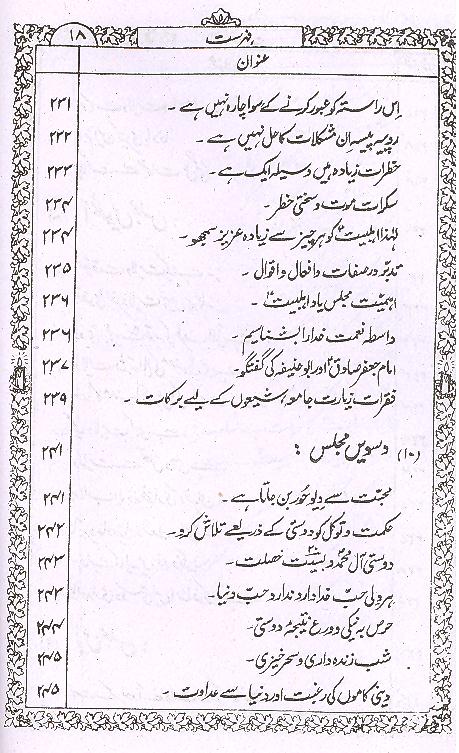 ۱۸ فہرست
عنوان
اِس راستہ کو عبور کرنے کے سوا چارہ نہیں ہے۔ ۲۳۱
روپیہ پیسہ ان مشکلات کا حل نہیں ہے۔ ۲۳۲
خطرات زیادہ ہیں وسیلہ ایک ہے۔ ۲۳۳
سکرات موت و سختی خطر۔ ۲۳۴
لہٰذا اہلبیتؑ کو ہر چیز سے زیادہ عزیز سمجھو۔ ۲۳۴
تدبّر در صفات و افعال و اقوال۔ ۲۳۵
اہمیّت مجلس یاد اہلبیتؑ۔ ۲۳۶
واسطۂ نعمت خدا را بشناسیم۔ ۲۳۶
امام جعفر صادقؑ اور ابو حنیفہ کی گفتگو۔ ۲۳۷
فقرات زیارت جامعہ، شیعوں کے لیے برکات۔ ۲۳۹
(۱۰) دسویں مجلس : ۲۴۱
محبّت سے دیو حور بن جاتا ہے۔ ۲۴۱
حکمت و توکل کو دوستی کے ذریعے تلاش کرو۔ ۲۴۲
دوستی آل محمدؐ و بیست خصلت۔ ۲۴۳
ہر دلی حبّ خدا دارد ندارد حبّ دنیا۔ ۲۴۳
حرص بہ نیکی و ورع نتیجۂ دوستی۔ ۲۴۴
شب زندہ داری و سحر خیزی۔ ۲۴۵
دینی کاموں کی رغبت اور دنیا سے عداوت۔ ۲۴۵